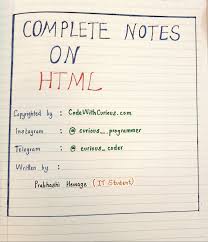 COMPLETE NOTES
ON
HTML
Copyrighted by : CodeWithCurious.com
Instagram : @ curious_.programmer
Telegram : @ curious_coder
Written by :
Prabhashi Hemage (IT Student)